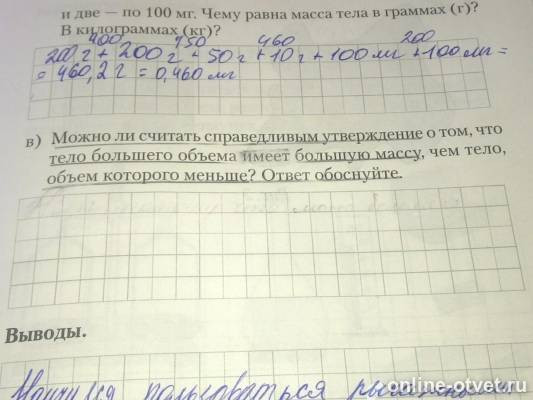 и две — по 100 мг. Чему равна масса тела в граммах (г)?
В килограммах (кг)?
400 450 460 200
200 г + 200 г + 50 г + 10 г + 100 мг + 100 мг =
= 460,2 г = 0,460 мг
в) Можно ли считать справедливым утверждение о том, что
тело большего объема имеет большую массу, чем тело,
объем которого меньше? Ответ обоснуйте.
Выводы.
Научился пользоваться
online-otvet.ru